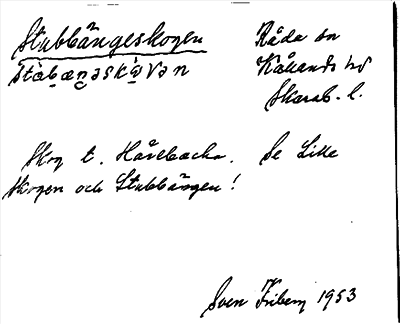 Stubbängeskogen
Råda sn
Kållands hd
Skarab. l.
Skog t. Hålbacka. Se Lille
skogen och Stubbängen!
Sven Friberg 1953